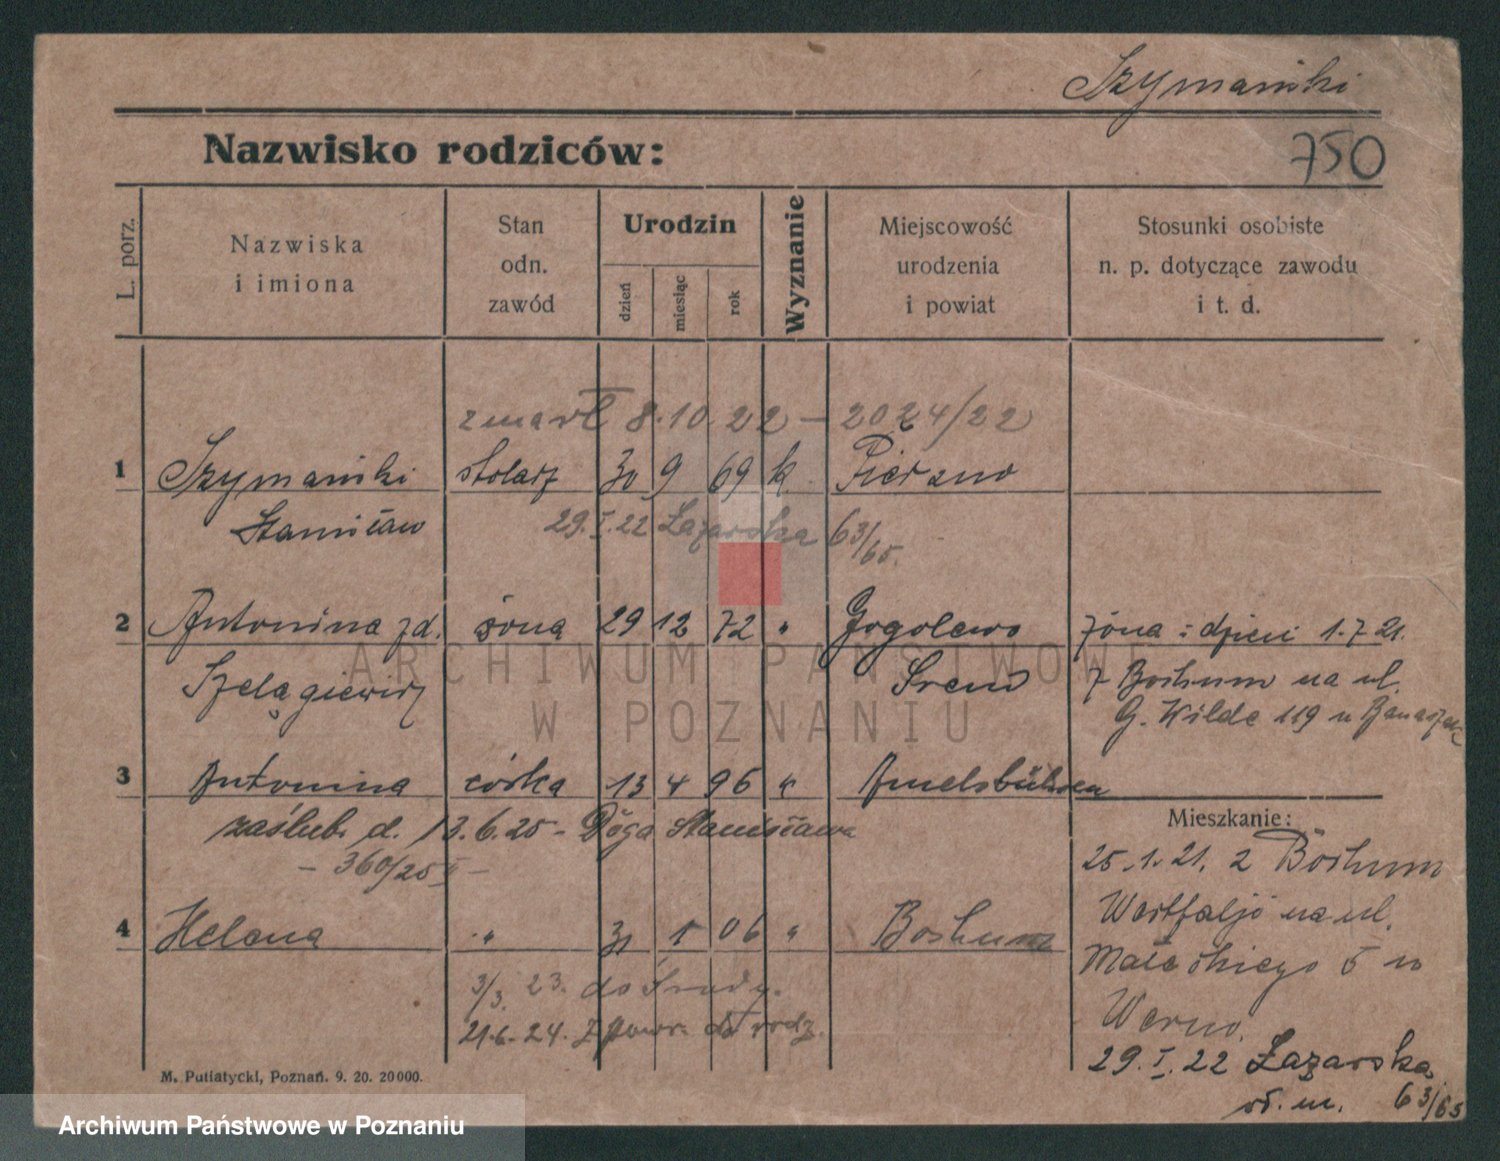 Szymański
Nazwisko rodziców:
750
L. porz.
Nazwiska
i imiona
Stan
odn.
zawód
Urodzin
dzień
miesiąc
rok
Wyznanie
Miejscowość
urodzenia
i powiat
Stosunki osobiste
n. p. dotyczące zawodu
i t. d.
zmarł 8.10.22 – 2024/22
1 Szymański stolarz 30 9 69 k.
Stanisław
29.I.22 Łazarska 63/65.
2 Antonina zd. żona 29 12 72 " Gogolewo żona i dzieci 1.7.21.
Szelągiewicz Śrem z Bochum na ul.
G. Wilde 119 u Banaszak
3 Antonina córka 13 4 96 " Amelsbühren
zaślub. d. 13.6.25 – Stanisława
– 360/25 –
Mieszkanie:
25.1.21. z Bochum
4 Helena " 31 1 06 " Bochum
na ul.
Małeckiego 5 u
3/3. 23. do Środy.
21.6.24. z powr. do rodz.
29.I.22 Łazarska
63/65
M. Putiatycki, Poznań. 9. 20. 20000.
ARCHIWUM PAŃSTWOWE
W POZNANIU
Archiwum Państwowe w Poznaniu